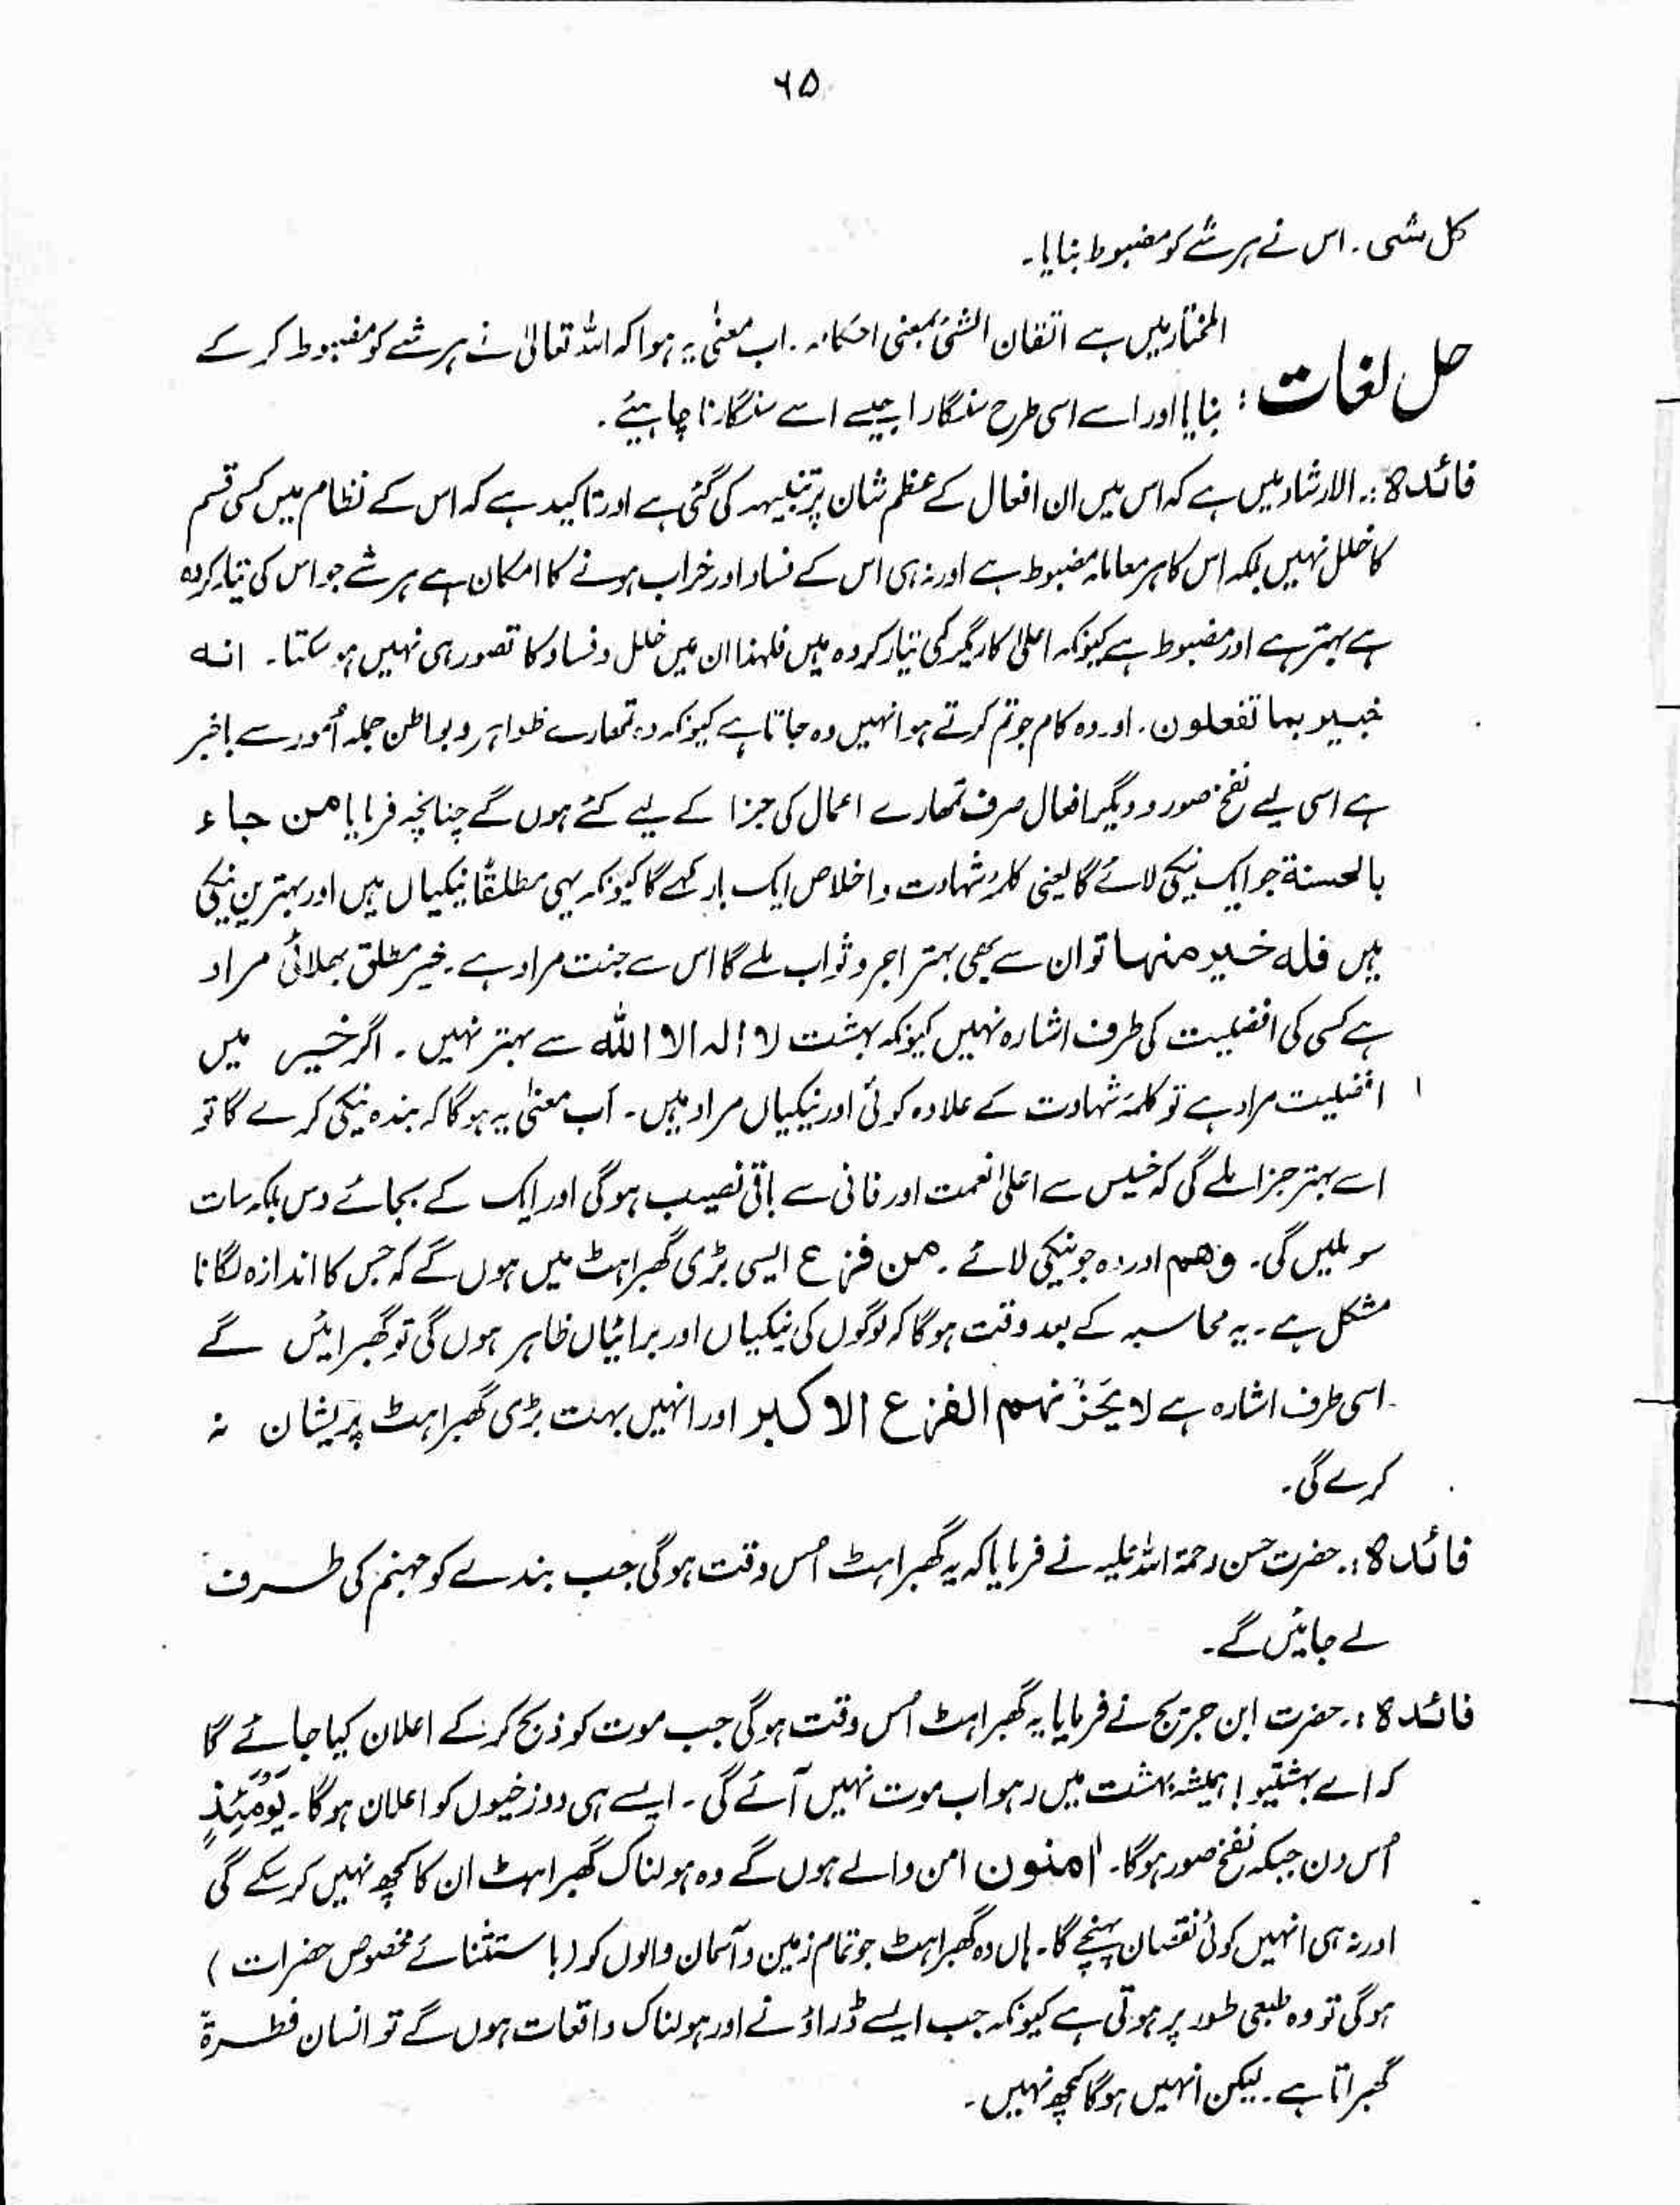 ۶۵
کل شی۔ اس نے ہر شے کو مضبوط بنایا۔
حل لغات : المختار میں ہے اتقان الشئ بمعنی احکامہ۔ اب معنٰی یہ ہوا کہ اللہ تعالیٰ نے ہر شے کو مضبوط کر کے
بنایا اور اسے اسی طرح سنگارا جیسے اسے سنگارنا چاہیئے۔
فائدہ :۔ الارشاد میں ہے کہ اس میں ان افعال کے عظم شان پر تنبیہہ کی گئی ہے اور تاکید ہے کہ اس کے نظام میں کسی قسم
کا خلل نہیں بلکہ اس کا ہر معاملہ مضبوط ہے اور نہ ہی اس کے فساد اور خراب ہونے کا امکان ہے ہر شے جو اس کی تیار کردہ
ہے بہتر ہے اور مضبوط ہے کیونکہ اعلیٰ کاریگر کی تیار کردہ ہیں فلہذا ان میں خلل و فساد کا تصور ہی نہیں ہو سکتا۔ انہ
خبیر بما تفعلون۔ اور وہ کام جو تم کرتے ہو انہیں وہ جانتا ہے کیونکہ وہ تمھارے ظواہر و بواطن جملہ اُمور سے باخبر
ہے اسی لیے نفخ صور و دیگر افعال صرف تمھارے اعمال کی جزا کے لیے کئے ہوں گے چنانچہ فرمایا من جاء
بالحسنة جو ایک نیکی لائے گا یعنی کلمۂ شہادت و اخلاص ایک بار کہے گا کیونکہ یہی مطلقًا نیکیاں ہیں اور بہترین نیکی
ہیں فلہ خیر منہا تو ان سے بھی بہتر اجر و ثواب ملے گا اس سے جنت مراد ہے۔ خیر مطلق بھلائی مراد
ہے کسی کی افضلیت کی طرف اشارہ نہیں کیونکہ بہشت لا الہ الا اللہ سے بہتر نہیں۔ اگر خیر میں
افضلیت مراد ہے تو کلمۂ شہادت کے علاوہ کوئی اور نیکیاں مراد ہیں۔ اب معنٰی یہ ہوگا کہ بندہ نیکی کرے گا تو
اسے بہتر جزا ملے گی کہ خسیس سے اعلیٰ نعمت اور فانی سے باقی نصیب ہوگی اور ایک کے بجائے دس بلکہ سات
سو ملیں گی۔ وھم اور وہ جو نیکی لائے۔ من فزع ایسی بڑی گھبراہٹ میں ہوں گے کہ جس کا اندازہ لگانا
مشکل ہے۔ یہ محاسبہ کے بعد وقت ہوگا کہ لوگوں کی نیکیاں اور برائیاں ظاہر ہوں گی تو گھبرائیں گے
اسی طرف اشارہ ہے لا یحزنہم الفزع الاکبر اور انہیں بہت بڑی گھبراہٹ پریشان نہ
کرے گی۔
فائدہ :۔ حضرت حسن رحمۃ اللہ علیہ نے فرمایا کہ یہ گھبراہٹ اُس وقت ہوگی جب بندے کو جہنم کی طرف
لے جائیں گے۔
فائدہ :۔ حضرت ابن جریج نے فرمایا یہ گھبراہٹ اُس وقت ہوگی جب موت کو ذبح کر کے اعلان کیا جائے گا
کہ اے بہشتیو! ہمیشہ بہشت میں رہو اب موت نہیں آئے گی۔ ایسے ہی دوزخیوں کو اعلان ہوگا۔ یَومَئِذٍ
اُس دن جبکہ نفخ صور ہوگا۔ اٰمنون امن والے ہوں گے وہ ہولناک گھبراہٹ ان کا کچھ نہیں کر سکے گی
اور نہ ہی انہیں کوئی نقصان پہنچے گا۔ ہاں وہ گھبراہٹ جو تمام زمین و آسمان والوں کو (با ستثنائے مخصوص حضرات)
ہوگی تو وہ طبعی طور پر ہوتی ہے کیونکہ جب ایسے ڈراؤنے اور ہولناک واقعات ہوں گے تو انسان فطرۃ
گھبراتا ہے۔ لیکن انہیں ہوگا کچھ نہیں۔